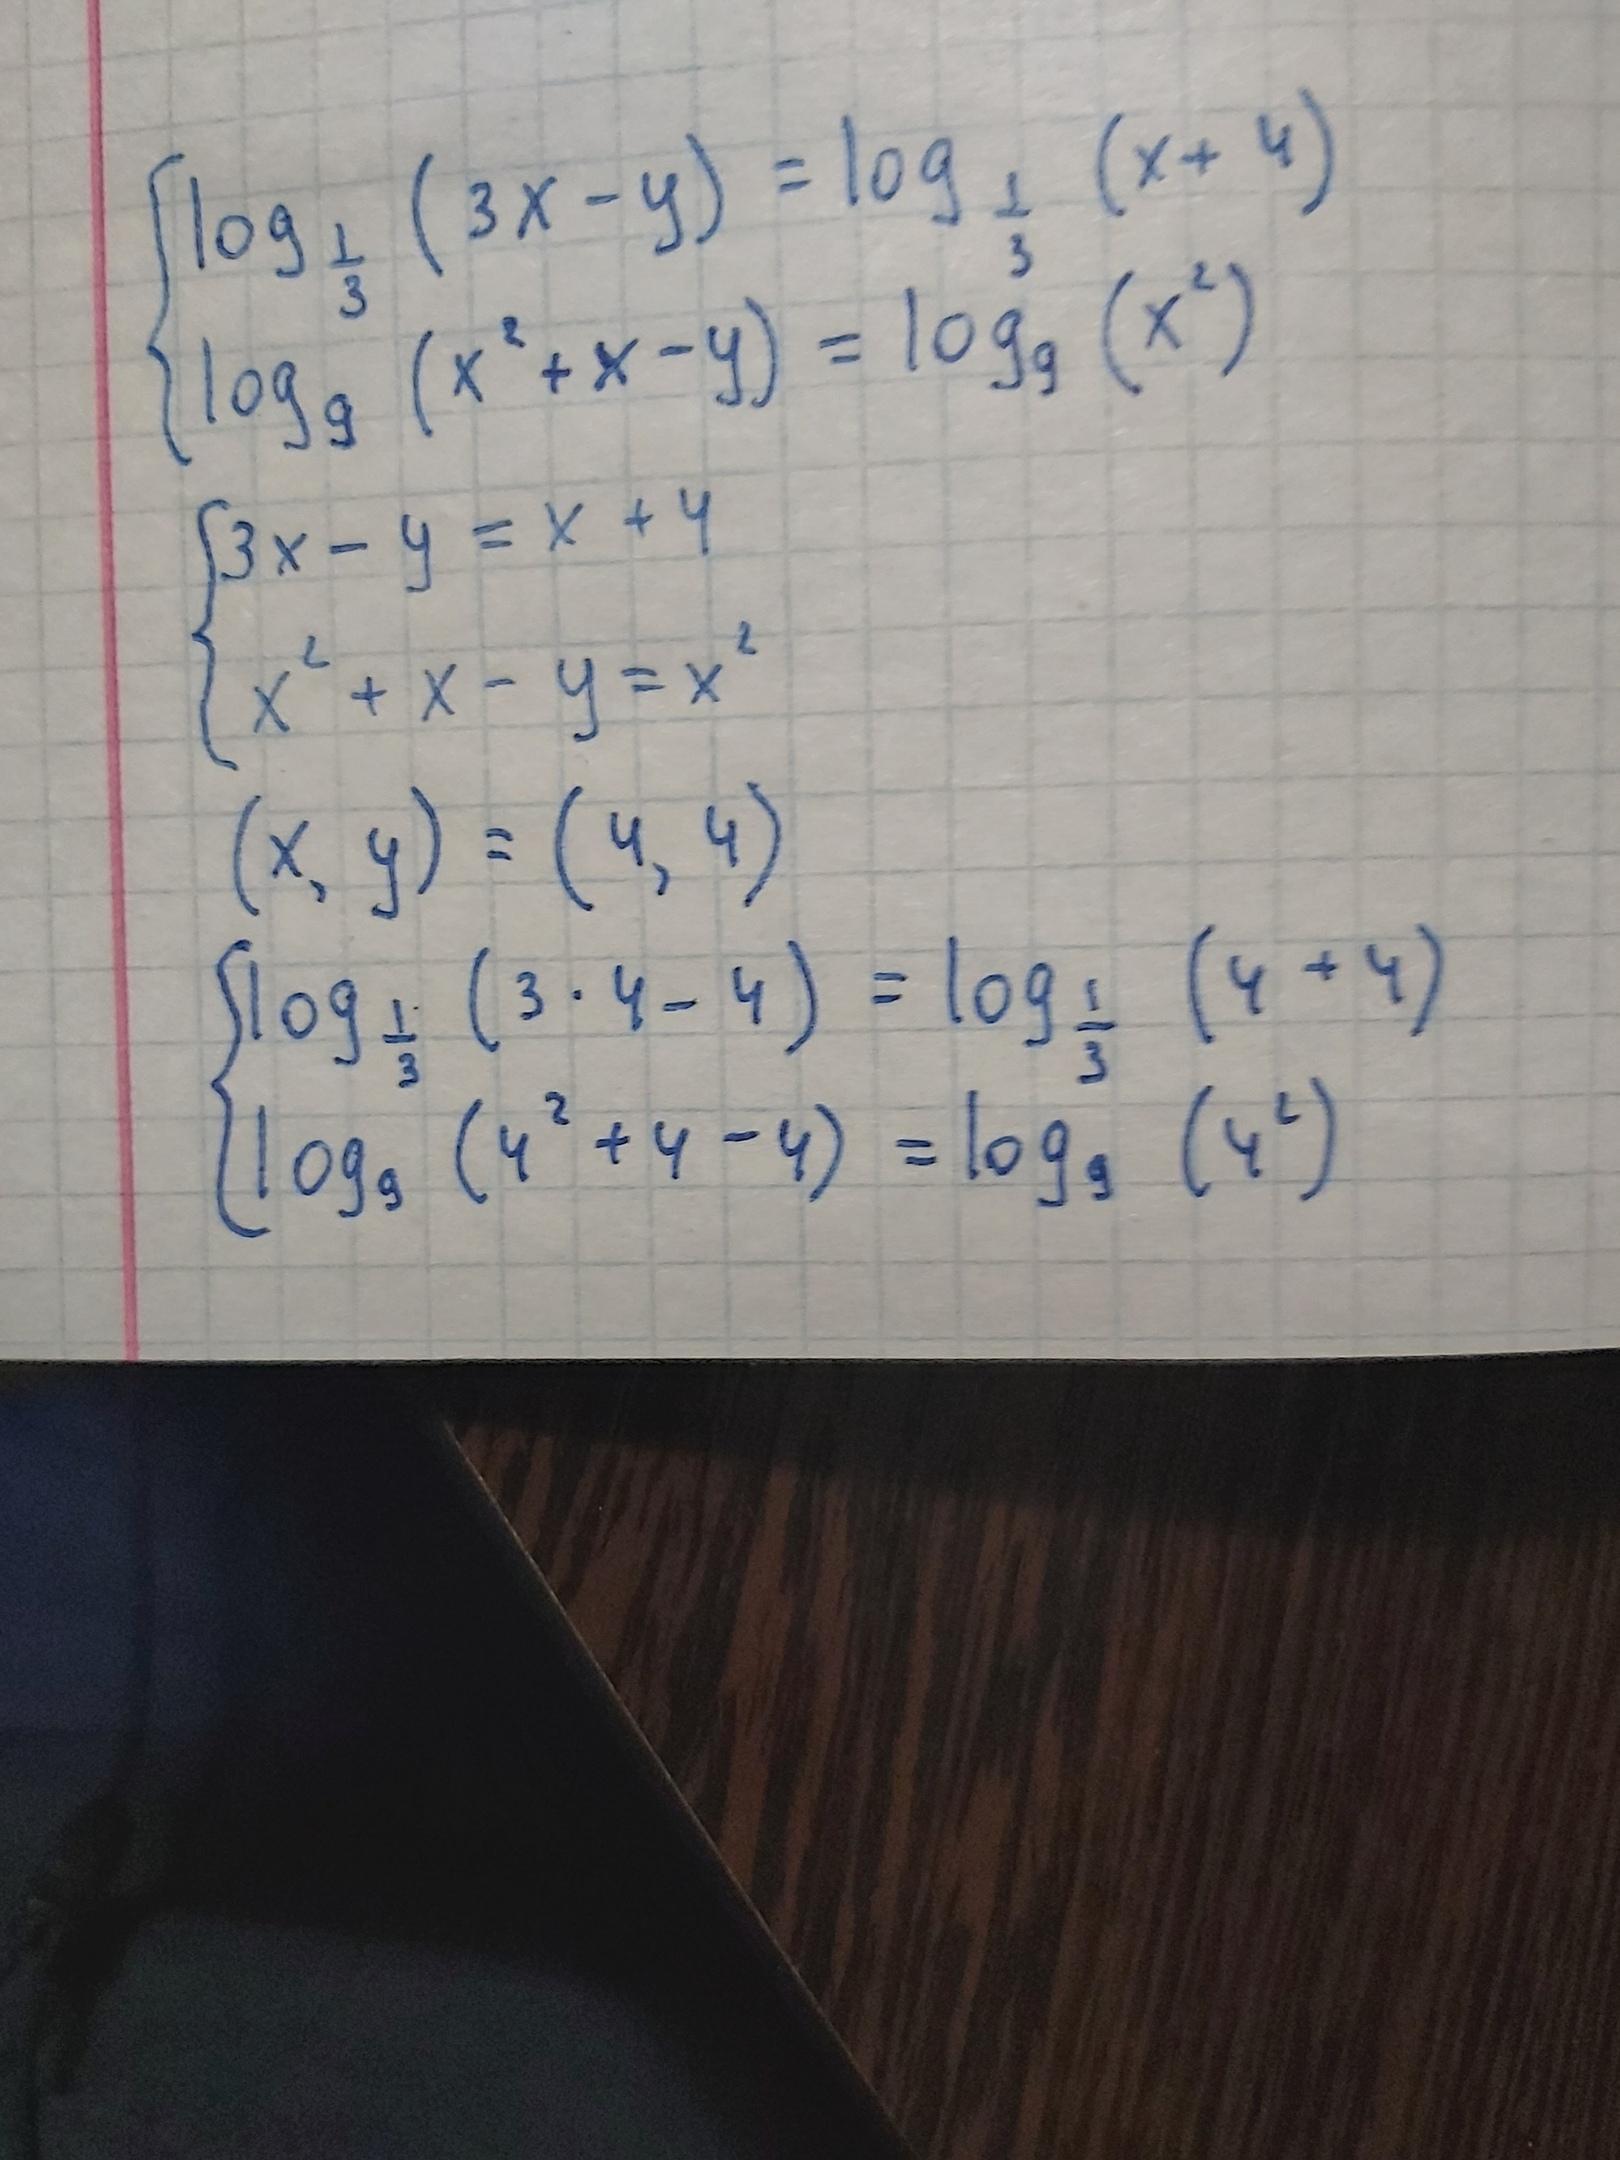 { log_{1/3} (3x - y) = log_{1/3} (x + 4)
log_9 (x² + x - y) = log_9 (x²)
{ 3x - y = x + 4
x² + x - y = x²
(x, y) = (4, 4)
{ log_{1/3} (3 · 4 - 4) = log_{1/3} (4 + 4)
log_9 (4² + 4 - 4) = log_9 (4²)